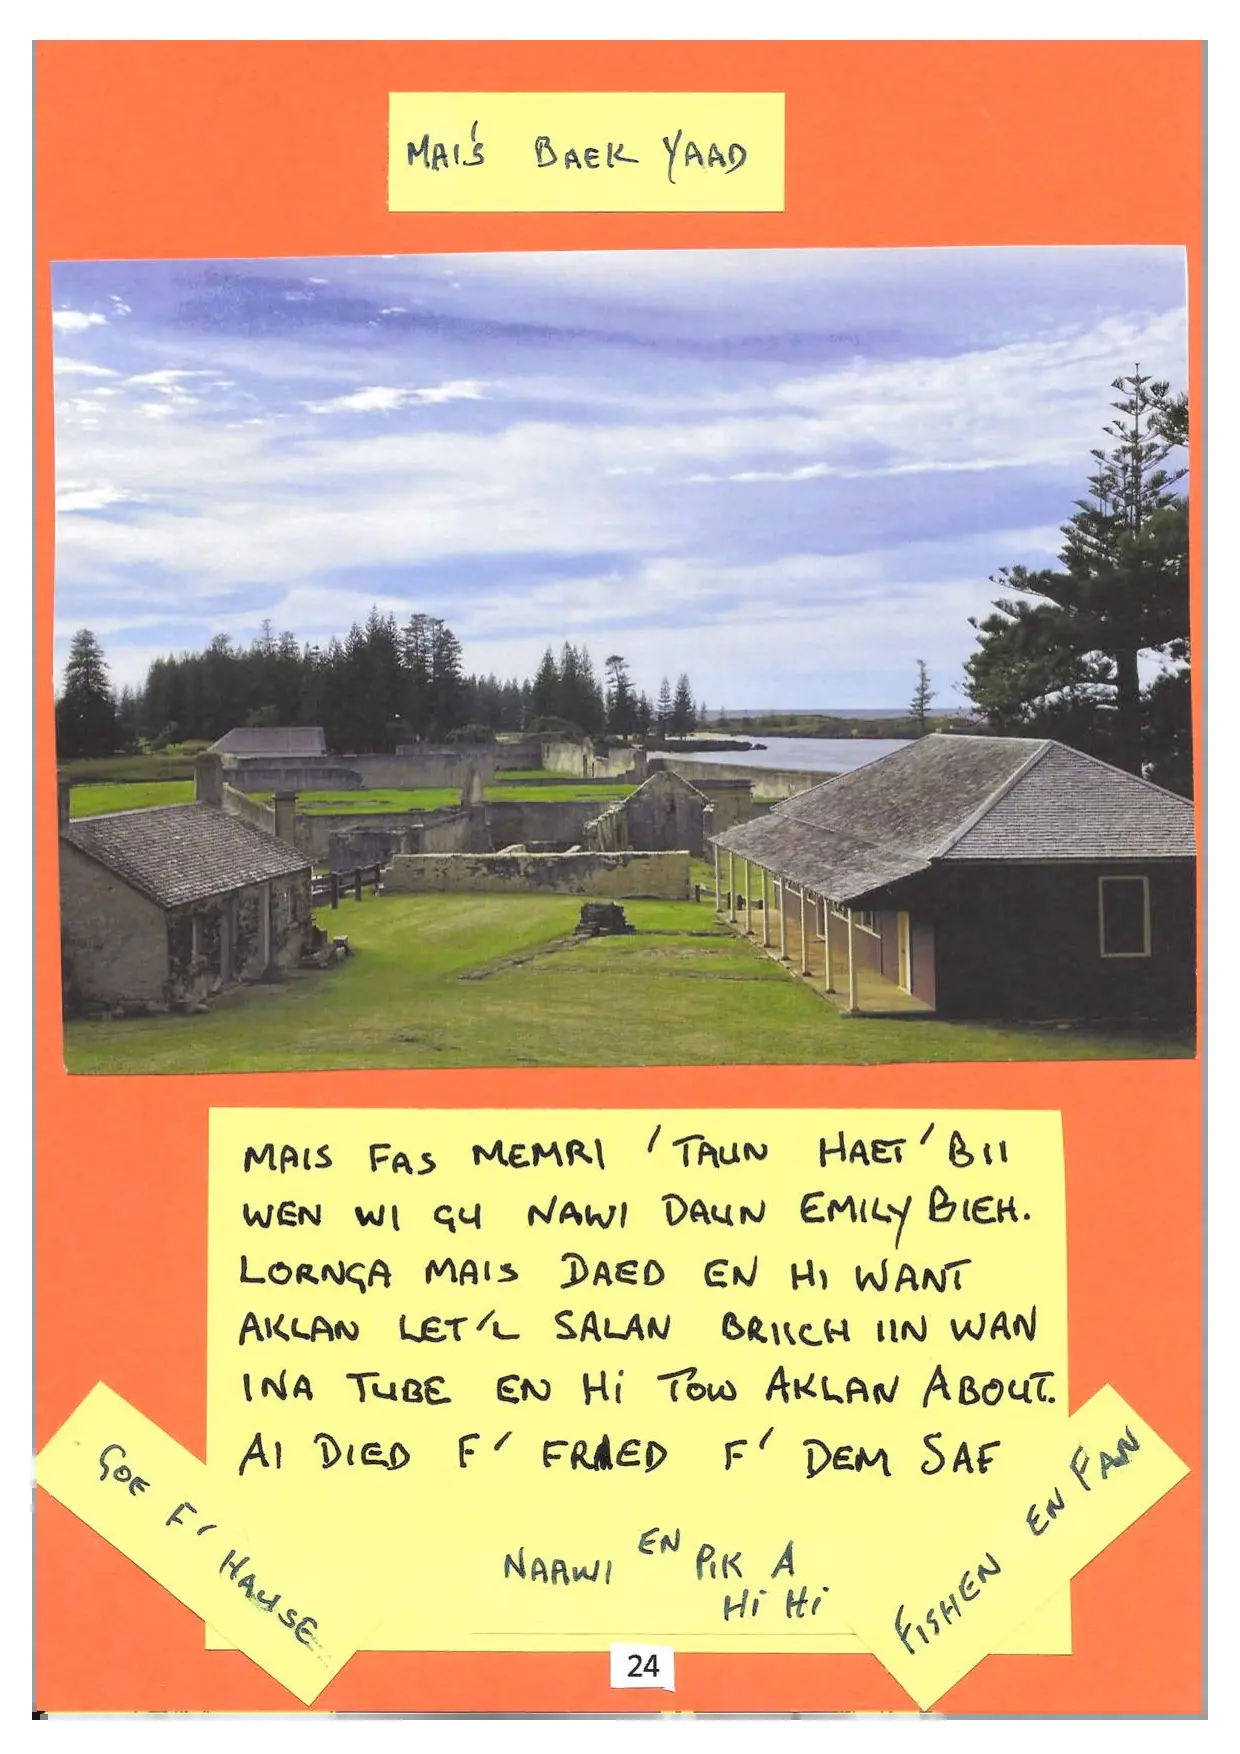 MAI'S BAEK YAAD
MAIS FAS MEMRI 'TAUN HAET' BII
WEN WI GU NAWI DAUN EMILY BIEH.
LORNGA MAIS DAED EN HI WANT
AKLAN LET'L SALAN BRIICH IIN WAN
INA TUBE EN Hi TOW AKLAN ABOUT.
AI DIED F' FRAED F' DEM SAF
GOE F' HAUSE
NAAWI EN PiK A
Hi Hi
FISHEN EN FAN
24